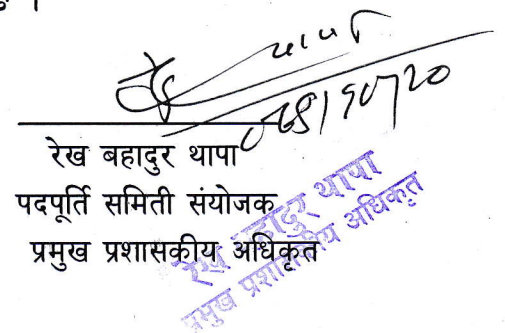 थापा
रेख बहादुर थापा
पदपूर्ति समिती संयोजक
प्रमुख प्रशासकीय अधिकृत
रेख बहादुर थापा
प्रमुख प्रशासकीय अधिकृत